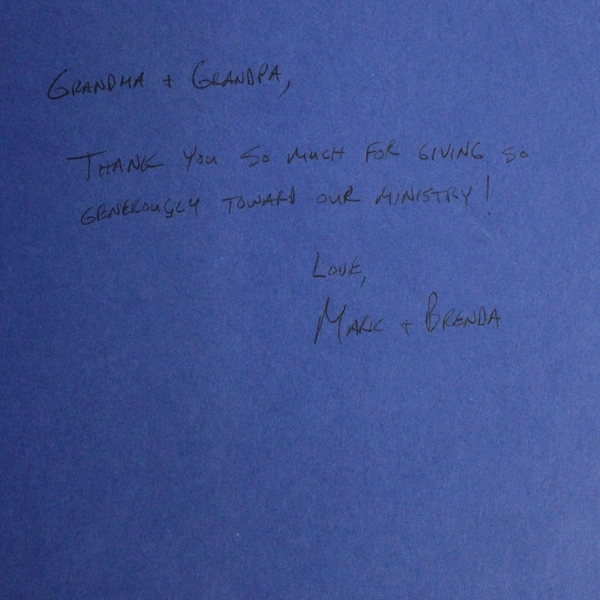 GRANDMA + GRANDPA,
THANK YOU SO MUCH FOR GIVING SO
GENEROUSLY TOWARD OUR MINISTRY!
LOVE,
MARK + BRENDA